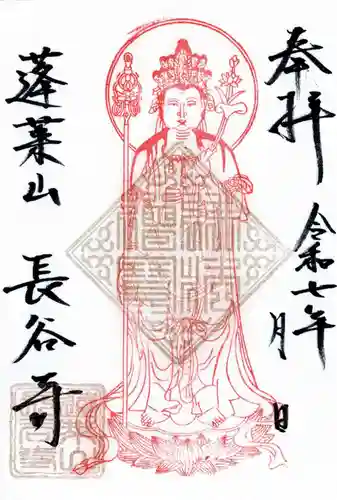 奉拝
令和七年
月 日
蓬莱山
長谷寺